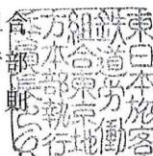 東日本旅客
鉄道労働
組合東京地
方本部執行
合
部
則